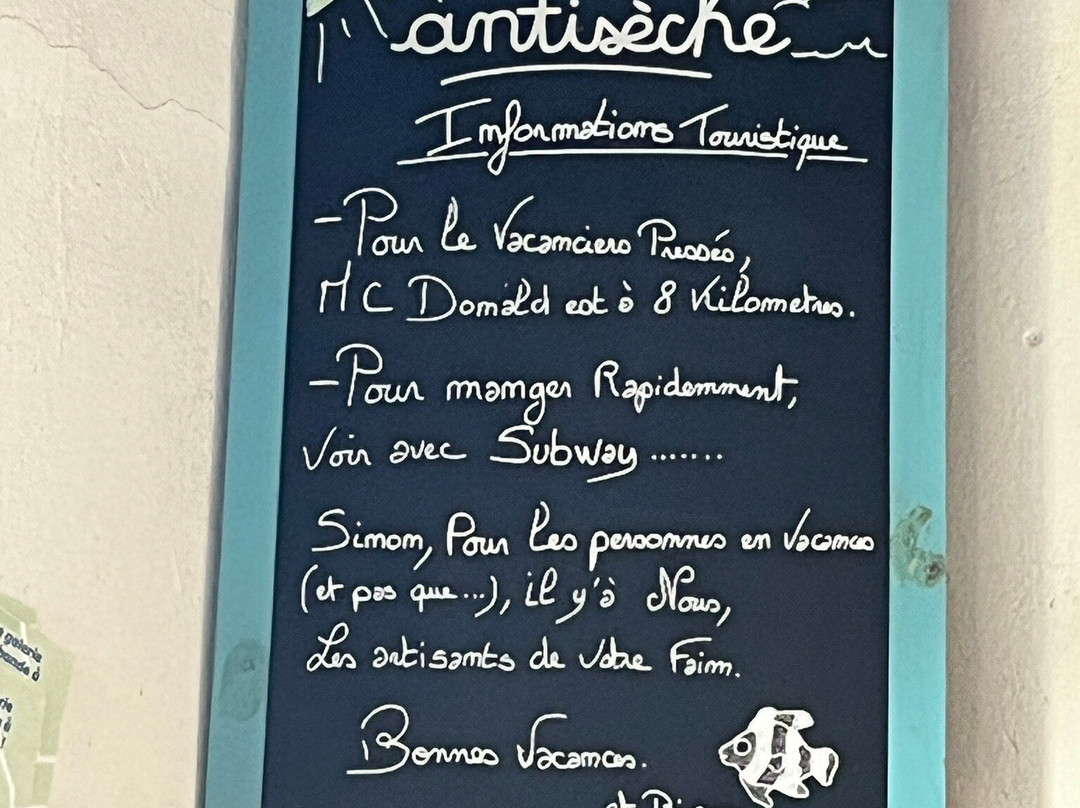 antisèche
Informations Touristique
-Pour le Vacanciers Pressés,
MC Donald est à 8 Kilometres.
-Pour manger Rapidemment,
Voir avec Subway.......
Sinon, Pour les personnes en Vacances
(et pas que...), il y'à Nous,
Les artisants de Votre Faim.
Bonnes Vacances.
et
galerie